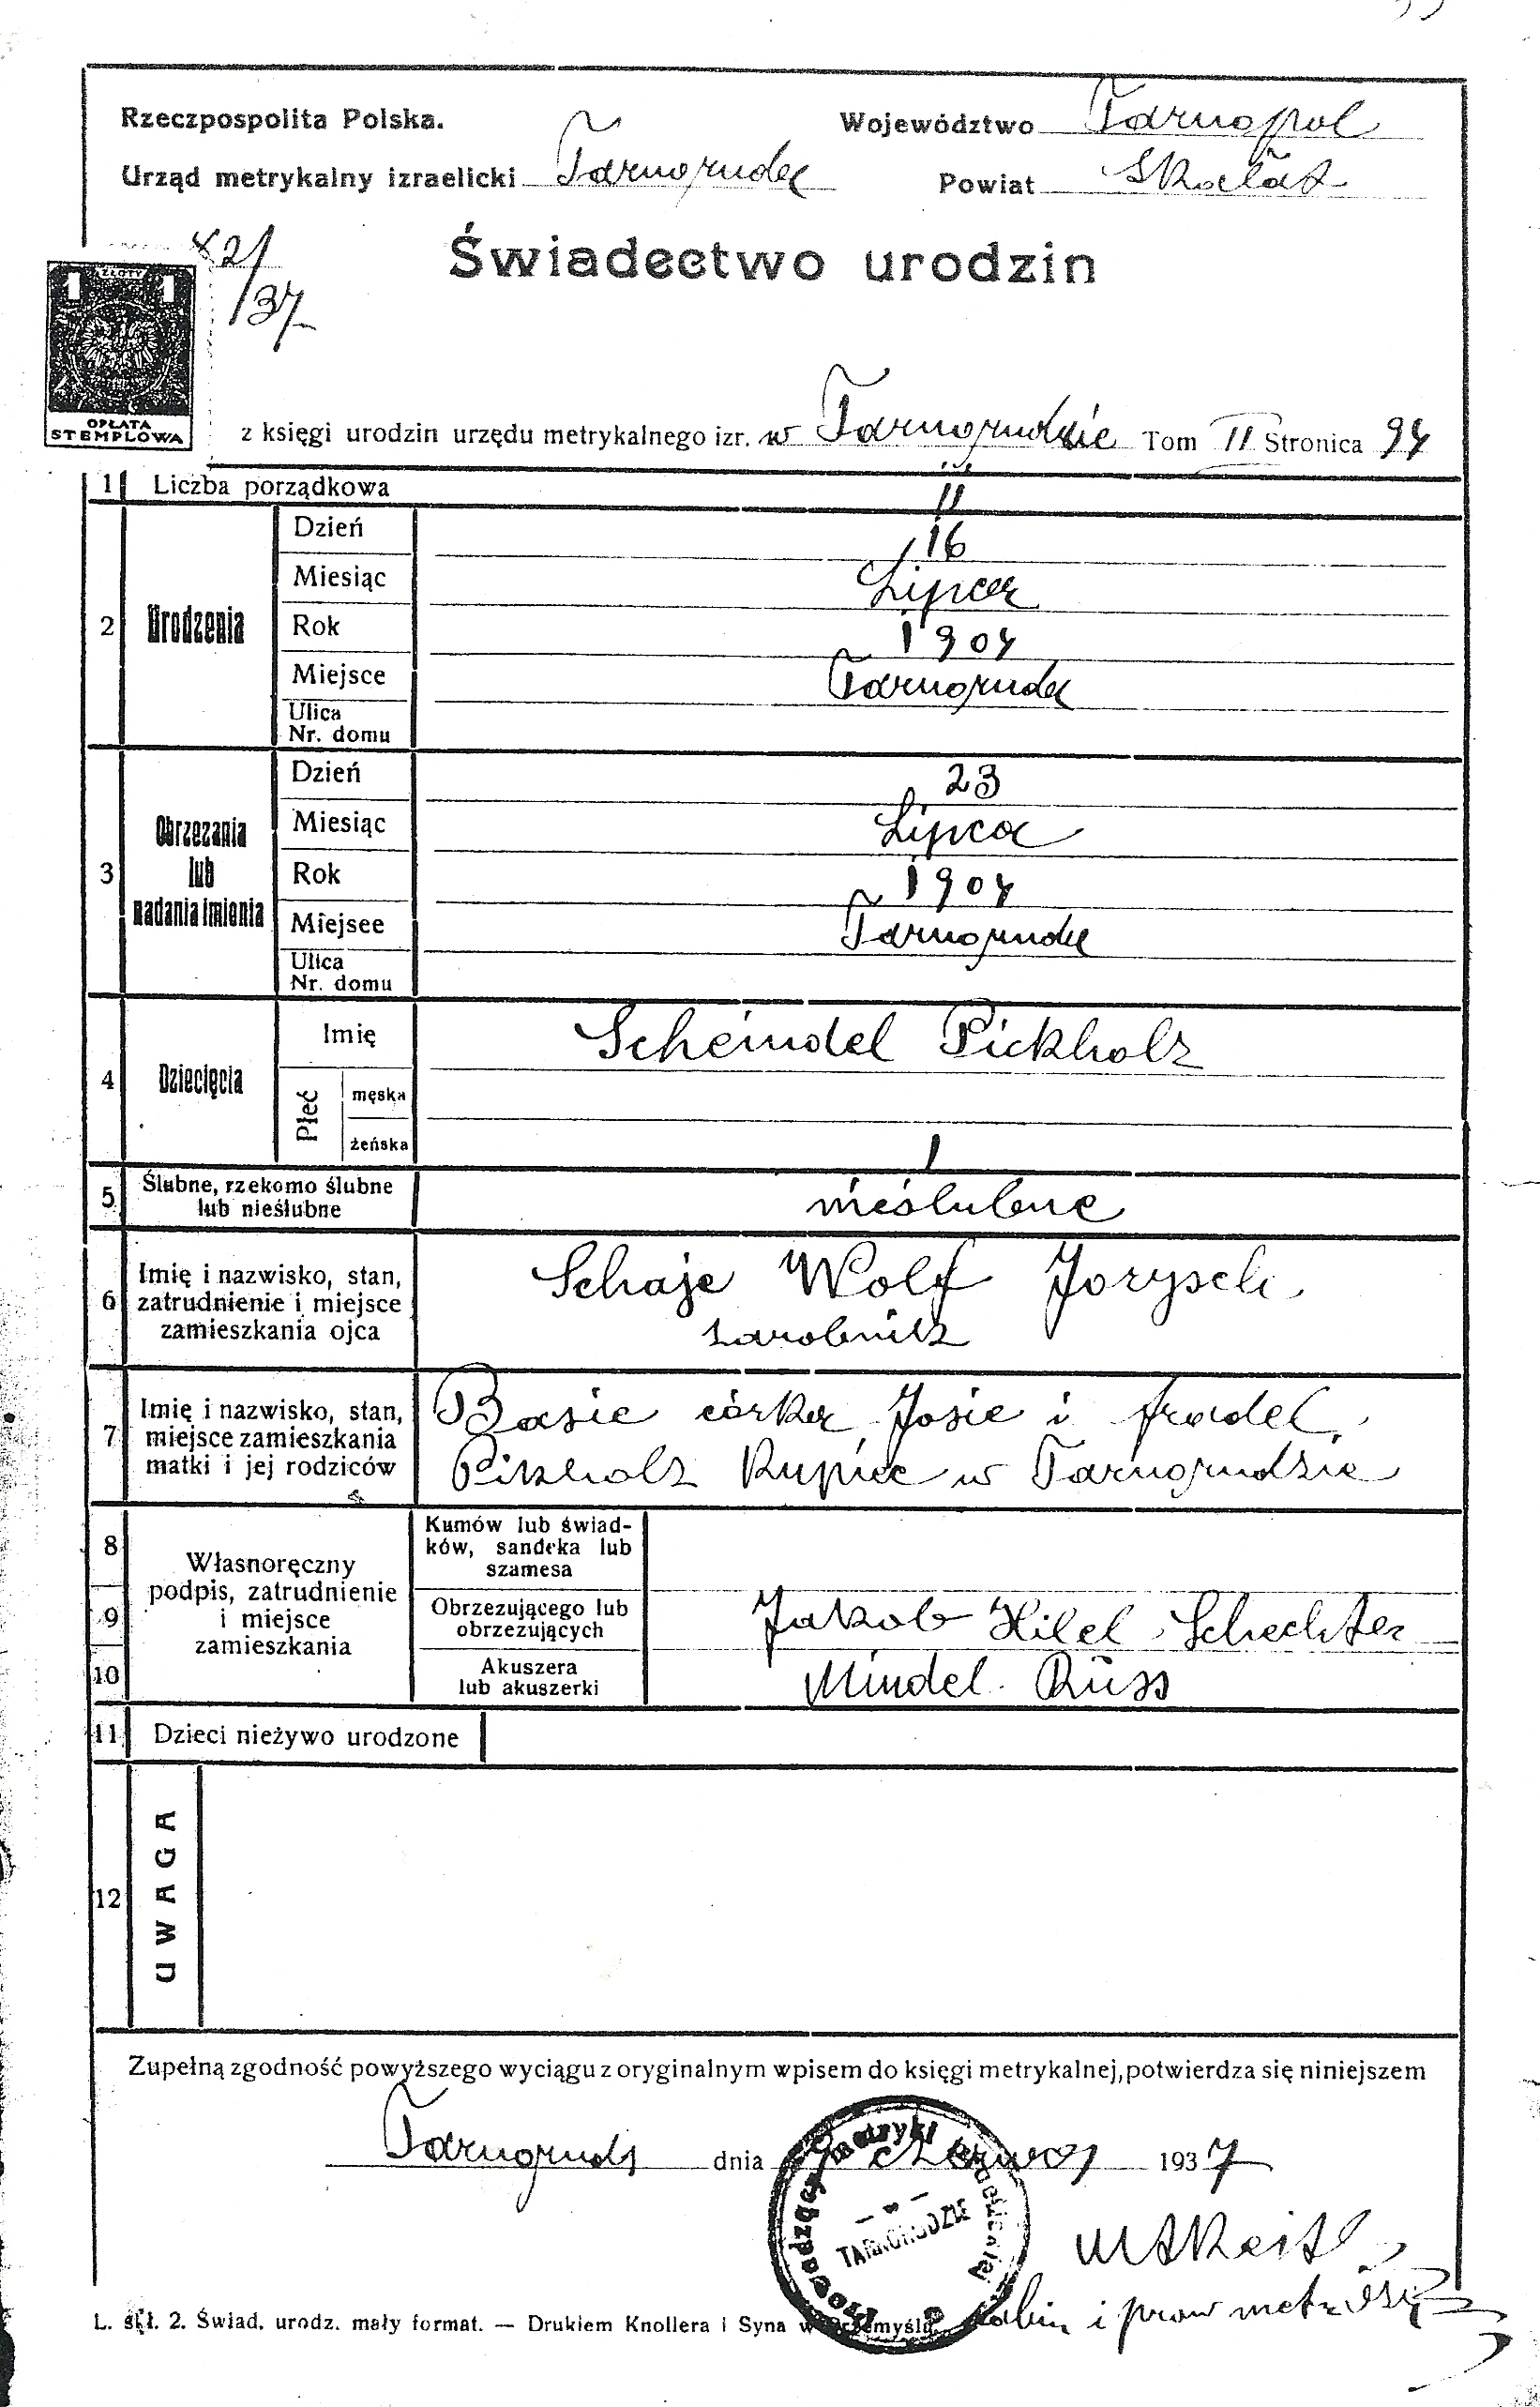 Rzeczpospolita Polska. Województwo Tarnopol
Urząd metrykalny izraelicki Tarnoruda Powiat Skałat
42/37
Świadectwo urodzin
1 ZŁOTY 1
OPŁATA
STEMPLOWA
z księgi urodzin urzędu metrykalnego izr. w Tarnorudzie Tom II Stronica 94
1 Liczba porządkowa 11
2 Urodzenia
Dzień 16
Miesiąc Lipca
Rok 1904
Miejsce Tarnoruda
Ulica
Nr. domu
3 Obrzezania lub nadania imienia
Dzień 23
Miesiąc Lipca
Rok 1904
Miejsee Tarnoruda
Ulica
Nr. domu
4 Dziecięcia
Imię Scheindel Pickholz
Płeć męska
żeńska 1
5 Ślubne, rzekomo ślubne
lub nieślubne
nieślubne
6 Imię i nazwisko, stan,
zatrudnienie i miejsce
zamieszkania ojca
Schaje Wolf Jorysch
zarobnik
7 Imię i nazwisko, stan,
miejsce zamieszkania
matki i jej rodziców
Basie córka Josie i Fradel
Pikholz Kupiec w Tarnorudzie
Własnoręczny
podpis, zatrudnienie
i miejsce
zamieszkania
8 Kumów lub świad-
ków, sandeka lub
szamesa
9 Obrzezującego lub
obrzezujących
Jakob Hilel Schechter
10 Akuszera
lub akuszerki
Mindel Rüss
11 Dzieci nieżywo urodzone
12 UWAGA
Zupełną zgodność powyższego wyciągu z oryginalnym wpisem do księgi metrykalnej, potwierdza się niniejszem
Tarnoruda dnia czerwca 1937
Prowadzący metryki izraelickiej
TARNORUDZIE
Rabin i prow metr
L. skł. 2. Świad. urodz. mały format. — Drukiem Knollera i Syna w Przemyślu.